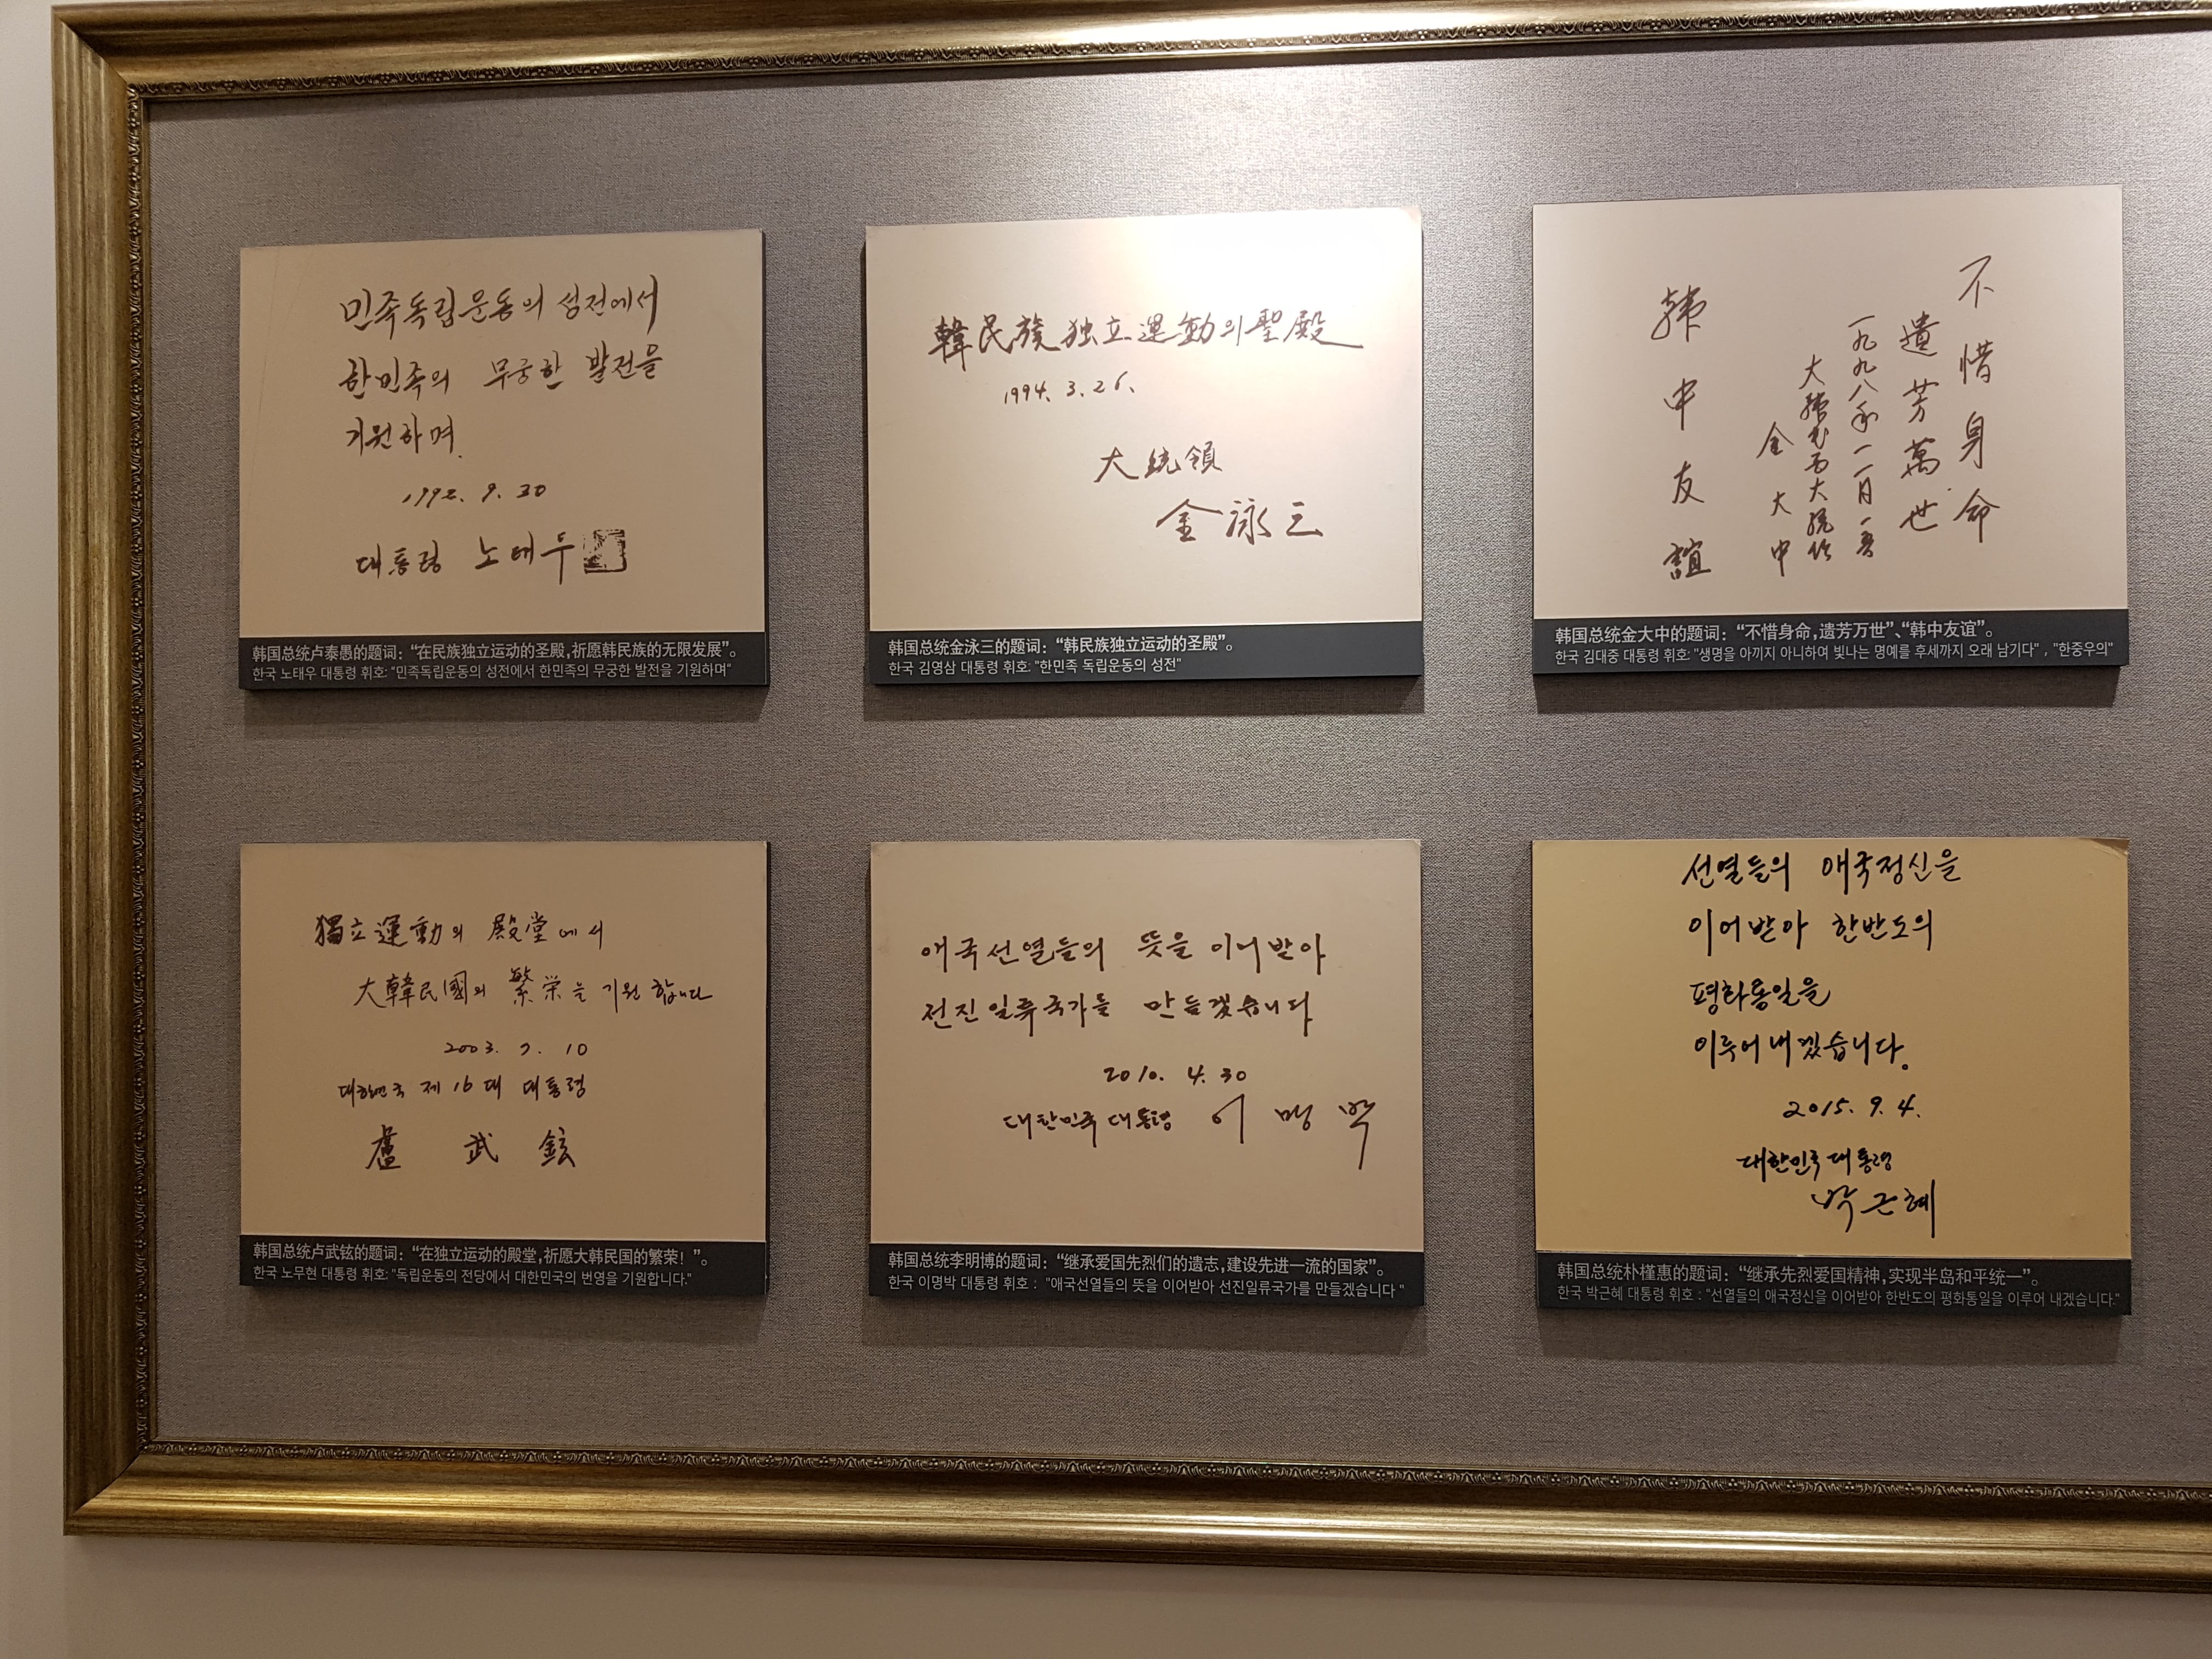 민족독립운동의 성전에서
한민족의 무궁한 발전을
기원하며.
1992. 9. 30
대통령 노태우
韩国总统卢泰愚的题词：“在民族独立运动的圣殿,祈愿韩民族的无限发展”。
한국 노태우 대통령 휘호: "민족독립운동의 성전에서 한민족의 무궁한 발전을 기원하며"
韓民族独立運動의 聖殿
1994. 3. 26.
大統領
金泳三
韩国总统金泳三的题词：“韩民族独立运动的圣殿”。
한국 김영삼 대통령 휘호: "한민족 독립운동의 성전"
不惜身命
遺芳萬世
一九九八年一一月一五
大韓民国大統領
金大中
韓中友誼
韩国总统金大中的题词：“不惜身命,遗芳万世”、“韩中友谊”。
한국 김대중 대통령 휘호: "생명을 아끼지 아니하여 빛나는 명예를 후세까지 오래 남기다" , "한중우의"
獨立運動의 殿堂에서
大韓民國의 繁栄을 기원합니다
2003. 7. 10
대한민국 제16대 대통령
盧武鉉
韩国总统卢武铉的题词：“在独立运动的殿堂,祈愿大韩民国的繁荣！”。
한국 노무현 대통령 휘호: "독립운동의 전당에서 대한민국의 번영을 기원합니다."
애국선열들의 뜻을 이어받아
선진일류국가를 만들겠습니다
2010. 4. 30
대한민국 대통령 이명박
韩国总统李明博的题词：“继承爱国先烈们的遗志,建设先进一流的国家”。
한국 이명박 대통령 휘호 : "애국선열들의 뜻을 이어받아 선진일류국가를 만들겠습니다"
선열들의 애국정신을
이어받아 한반도의
평화통일을
이루어 내겠습니다.
2015. 9. 4.
대한민국 대통령
박근혜
韩国总统朴槿惠的题词：“继承先烈爱国精神,实现半岛和平统一”。
한국 박근혜 대통령 휘호 : "선열들의 애국정신을 이어받아 한반도의 평화통일을 이루어 내겠습니다."